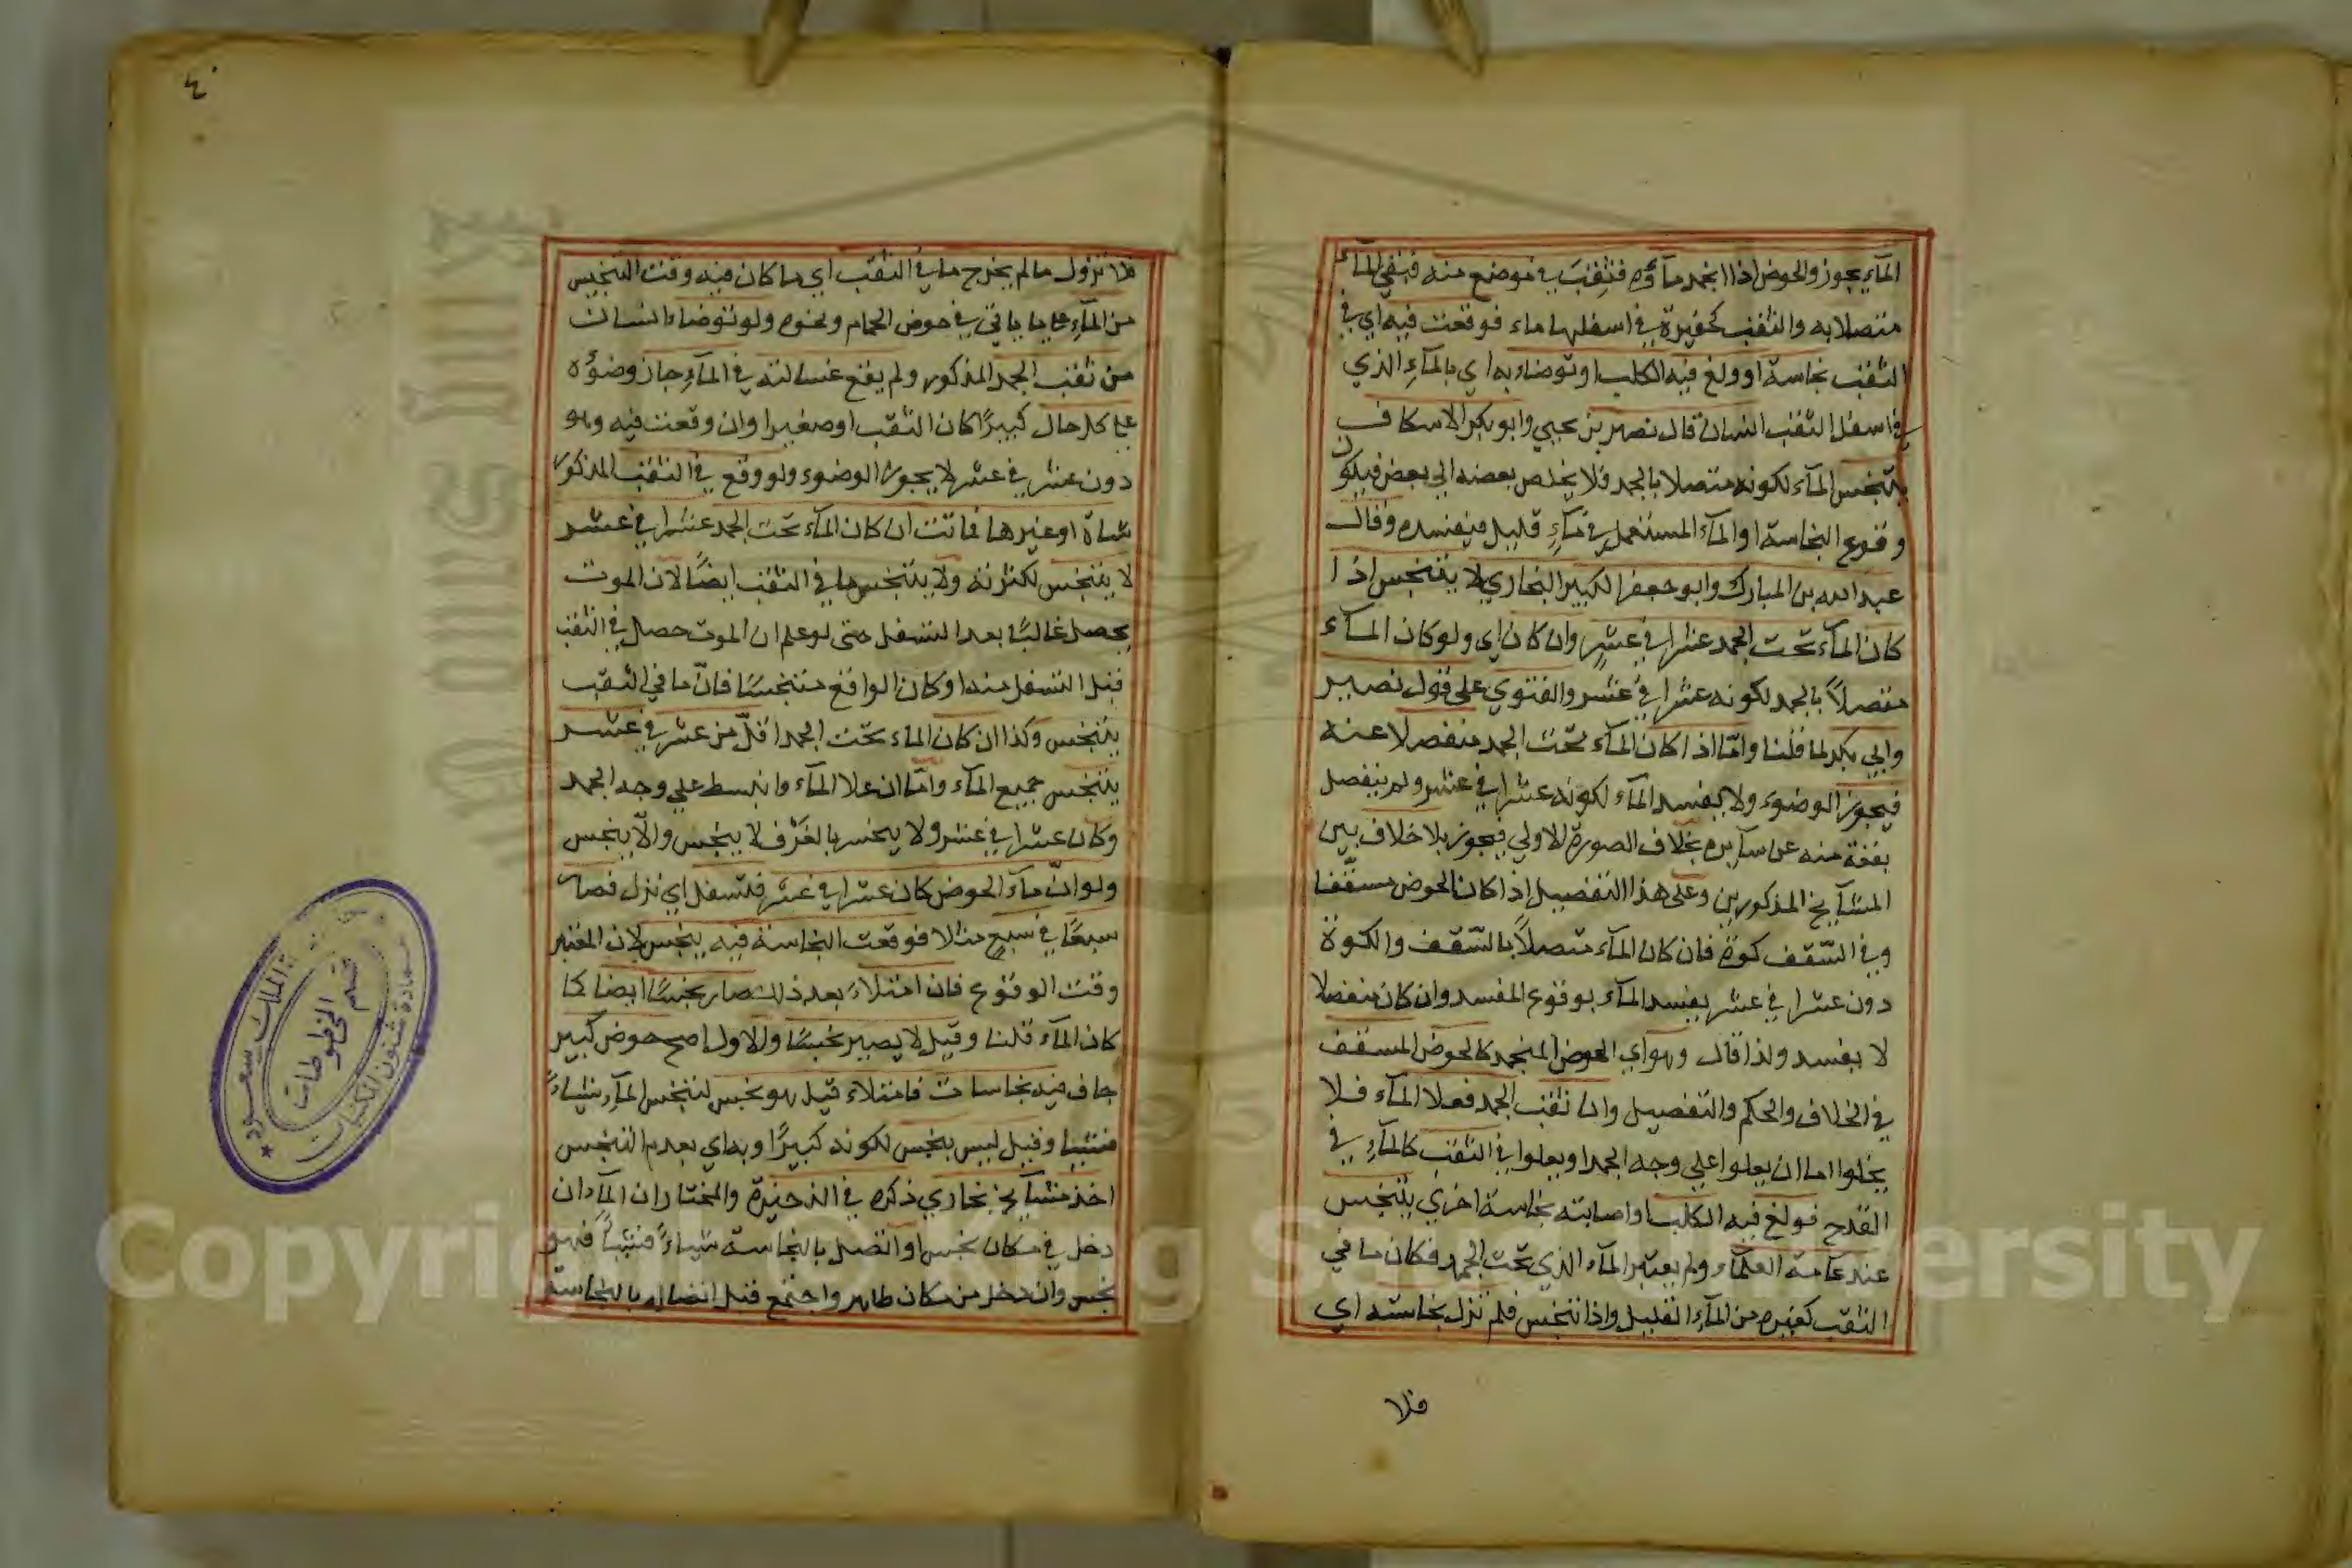 المآء يجوز والحوض اذا انجمد مآؤه فنقب في موضع منه فبقي المآء
متصلا به والنقب كحفيرة في اسفلها ماء فوقعت فيه اي في
النقب نجاسة او ولغ فيه الكلب او توضاء به اي بالمآء الذي
في اسفل النقب انسان قال نصير بن يحيي وابو بكر الاسكاف
يتنجس المآء لكونه متصلا بالجمد فلا يخلص بعضه الي بعض فيكون
وقوع النجاسة او المآء المستعمل في مآء قليل فيفسده وقال
عبد الله بن المبارك وابو حفص الكبير البخاري لا يتنجس اذا
كان المآء تحت الجمد عشرا في عشر وان كان اي ولو كان المآء
متصلاً بالجمد لكونه عشرا في عشر والفتوي على قول نصير
وابي بكر لما قلنا وامّا اذا كان المآء تحت الجمد منفصلا عنه
فيجوز الوضوء ولا يفسد المآء لكونه عشرا في عشر ولم ينفصل
بقعة منه عن سآيره بخلاف الصورة الاولي فيجوز بلا خلاف بين
المشآيخ المذكورين وعلى هذا التفصيل اذا كان الحوض مسقّفا
وفي السّقف كوة فان كان المآء متصلاً بالسّقف والكوة
دون عشرا في عشر يفسد المآء بوقوع المفسد وان كان منفصلا
لا يفسد ولذا قال وهو اي الحوض المنجمد كالحوض المسقف
في الخلاف والحكم والتفصيل وان نقب الجمد فعلا المآء فلا
يخلوا اما ان يعلوا علي وجه الجمد او يعلوا في النقب كالمآء في
القدح فولغ فيه الكلب او اصابته نجاسة اخري يتنجس
عند عآمة العلمآء ولم يعتبر المآء الذي تحت الجمد فكان ما في
النقب كغيره من المآء القليل واذا تنجس فلم تزل نجاسته اي
فلا
٤٠
فلا تزول ما لم يخرج ما في النقب اي ما كان فيه وقت التنجيس
من المآء علي ما ياتي في حوض الحمام ونحوه ولو توضاء انسان
من نقب الجمد المذكور ولم يقع غسالته في المآء جاز وضوؤه
علي كل حال كبيرًا كان النقب او صغيرا وان وقعت فيه وهو
دون عشر في عشر لا يجوز الوضوء ولو وقع في النقب المذكور
شاة او غيرها فماتت ان كان المآء تحت الجمد عشرا في عشر
لا يتنجس لكثرته ولا يتنجس ما في النقب ايضًا لان الموت
يحصل غالبًا بعد التسفل حتى لو علم ان الموت حصل في النقب
قبل التسفل منه او كان الواقع متنجسًا فانّ ما في النقب
يتنجس وكذا ان كان الماء تحت الجمد اقلّ من عشر في عشر
يتنجس جميع المآء وامّا ان علا المآء وانبسط علي وجه الجمد
وكان عشرا في عشر ولا ينحسر بالغَرْف لا ينجس والاّ ينجس
ولو انّ مآء الحوض كان عشرا في عشر فتسفل اي نزل فصار
سبعًا في سبع مثلا فوقعت النجاسة فيه ينجس لان المعتبر
وقت الوقوع فان امتلاءَ بعد ذلك صار نجسًا ايضا كما
كان المآء قلنا وقيل لا يصير نجسًا والاول اصح حوض كبير
جاف فيه نجاسات فامتلاء قيل هو نجس لتنجس المآء شياءً
فشيا وقيل ليس بنجس لكونه كبيرًا وبه اي بعدم التنجس
اخذ مشآيخ بخاري ذكره في الذخيرة والمختار ان المآء ان
دخل في مكان نجس او اتصل بالنجاسة شياءً فشياً فهو
نجس وان دخل من مكان طاهر واجتمع قبل اتصاله بالنجاسة
الملك سعود
عمادة شئون المكتبات
قسم المخطوطات
Copyright © King Saud University